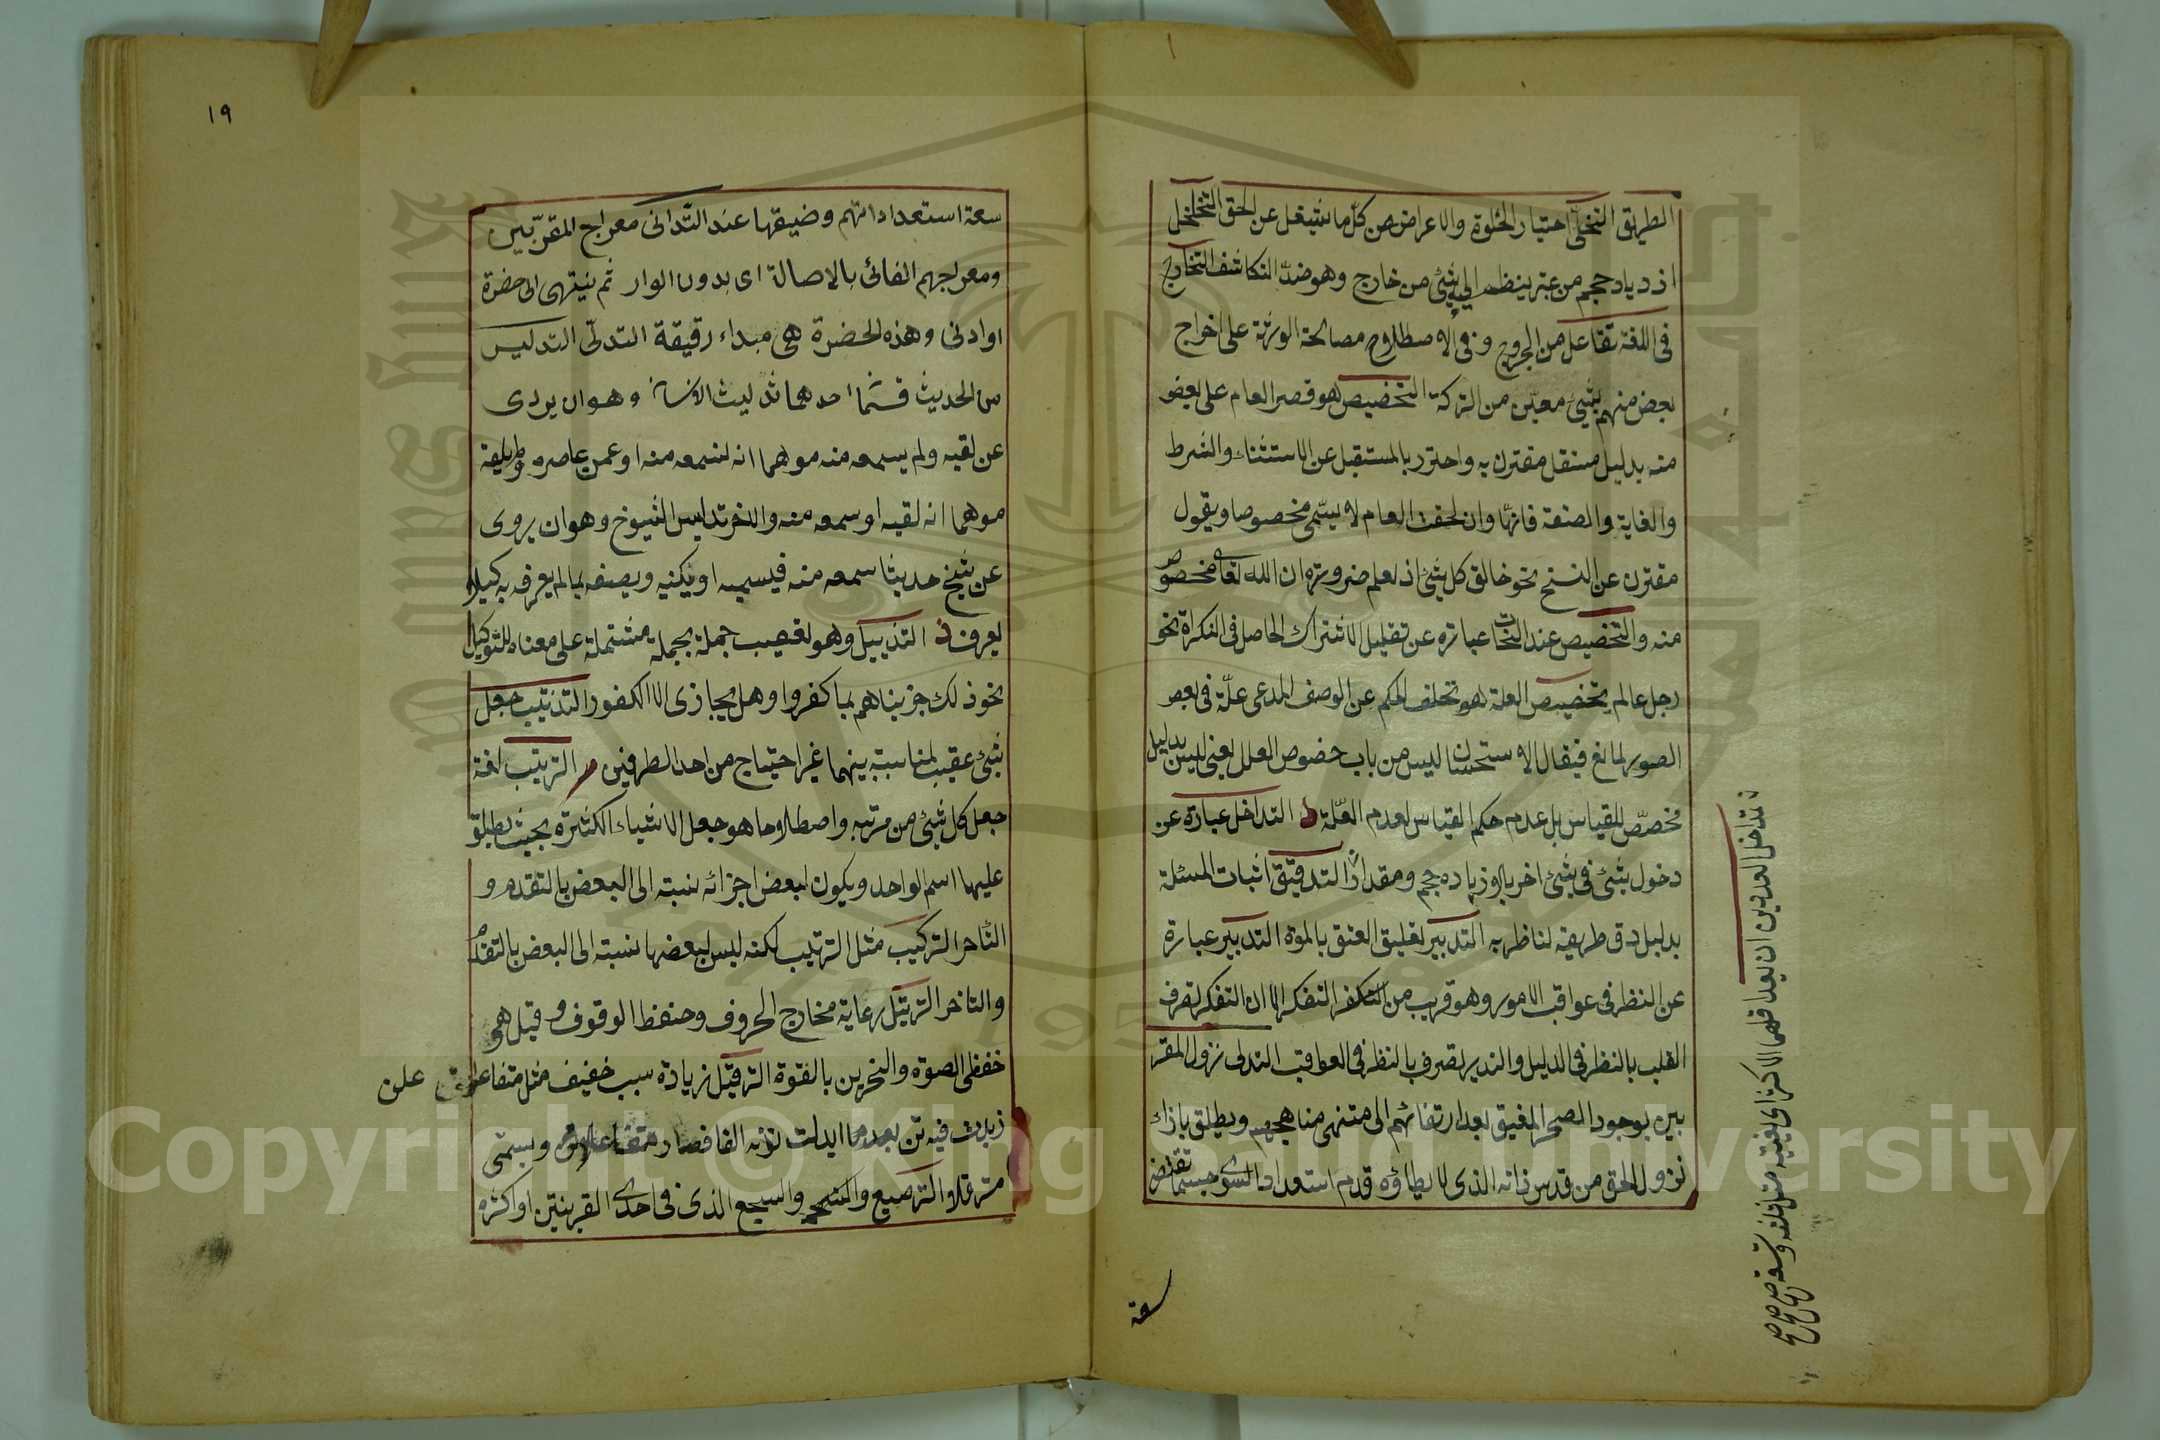 الطريق التخلي اختيار الخلوة والاعراض من كل ما يشغل عن الحق التخلخل
ازدياد حجم من غير ينظم الي شئ من خارج وهو ضد التكاثف التخارج
فى اللغة تفاعل من الخروج وفى الاصطلاح مصالحة الورثة على اخراج
بعض منهم بشئ معين من التركة التخصيص هو قصر العام على بعض
منه بدليل مستقل مقترن به واحترز بالمستقبل عن الاستثناء والشرط
والغاية والصنفة فانها وان لحقت العام لا يسمى مخصوصا ويقول
مقترن عن النسخ نحو خالق كل شئ اذ لعلم ضرورته ان الله تعالى مخصوص
منه والتخصيص عند النحات عبارة عن تقليل الاشتراك الحاصل فى النكرة نحو
رجل عالم تخصيص العلة هو تخلف الحكم عن الوصف المدعى علة فى بعض
الصور لمانع فيقال الاستحسان ليس من باب خصوص العلل يعنى ليس بدليل
مخصص للقياس بل عدم حكم القياس لعدم العلة د التداخل عبارة عن
دخول شئ فى شئ اخر بلا زياده حجم ومقدار التدقيق اثبات المسئلة
بدليل دق طريقه لناظريه التدبير تعليق العتق بالموة التدبير عبارة
عن النظر فى عواقب الامور وهو قريب من التفكر الا ان التفكر تصرف
القلب بالنظر فى الدليل والتدبر تصرف بالنظر فى العواقب التدلى نزول المقر
بين بوجود الصحو المفيق بعد ارتقائهم الى منتهى مناهجهم ويطلق بازاء
نزول الحق من قدس ذاته الذى لا يطاؤه قدم استعداد السوى حسبما تقتضى
سعة
تداخل العددين ان يعد اقلهما الاكثر اى يفنيه مثل ثلثه وتسعه صح صح صح
١٩
سعة استعداداتهم وضيقها عند التدانى معراج المقربين
ومعراجهم الغائى بالاصالة اى بدون الوار ثم ينتهى الى حضرة
او ادنى وهذه الحضرة هى مبداء رقيقة التدلى التدليس
من الحديث قسما احدهما تدليث الاسناد وهو ان يروى
عن لقيه ولم يسمعه منه موهما انه لسمعه منه او عمن عاصره ولم يلقه
موهما انه لقيه او سمعه منه والاخر تدليس الشيوخ وهو ان يروى
عن شيخ حديثا سمعه منه فيسميه او يكنيه ويصفه بما لم يعرف به كيلا
يعرف ذ التذييل وهو تعقيب جملة بجملة مشتملة على معناه للتوكيد
نحو ذلك جزيناهم بما كفروا وهل يجازى الا الكفور التذنيب جعل
شئ عقيب لمناسبة بينهما غير احتياج من احد الطرفين ر الترتيب لغة
جعل كل شئ من مرتبه واصطلاحا هو جعل الاشياء الكثيرة بحيث يطلق
عليها اسم الواحد ويكون لبعض اجزائه نسبته الى البعض بالتقدم و
التاخر التركيب مثل الترتيب لكنه ليس لبعضها نسبته الى البعض بالتقدم
والتاخر الترتيل رعاية مخارج الحروف وحفظ الوقوف وقيل هى
خفظ الصوة والتحزين بالقوة الترفيل زيادة سبب خفيف مثل متفاعلن علن
زيدت فيه تن بعد ما ابدلت نونه الفا فصار متفاعلاتن ويسمى
مترفلا الترصيع والسجع الذى فى احدى القرينتين او اكثره